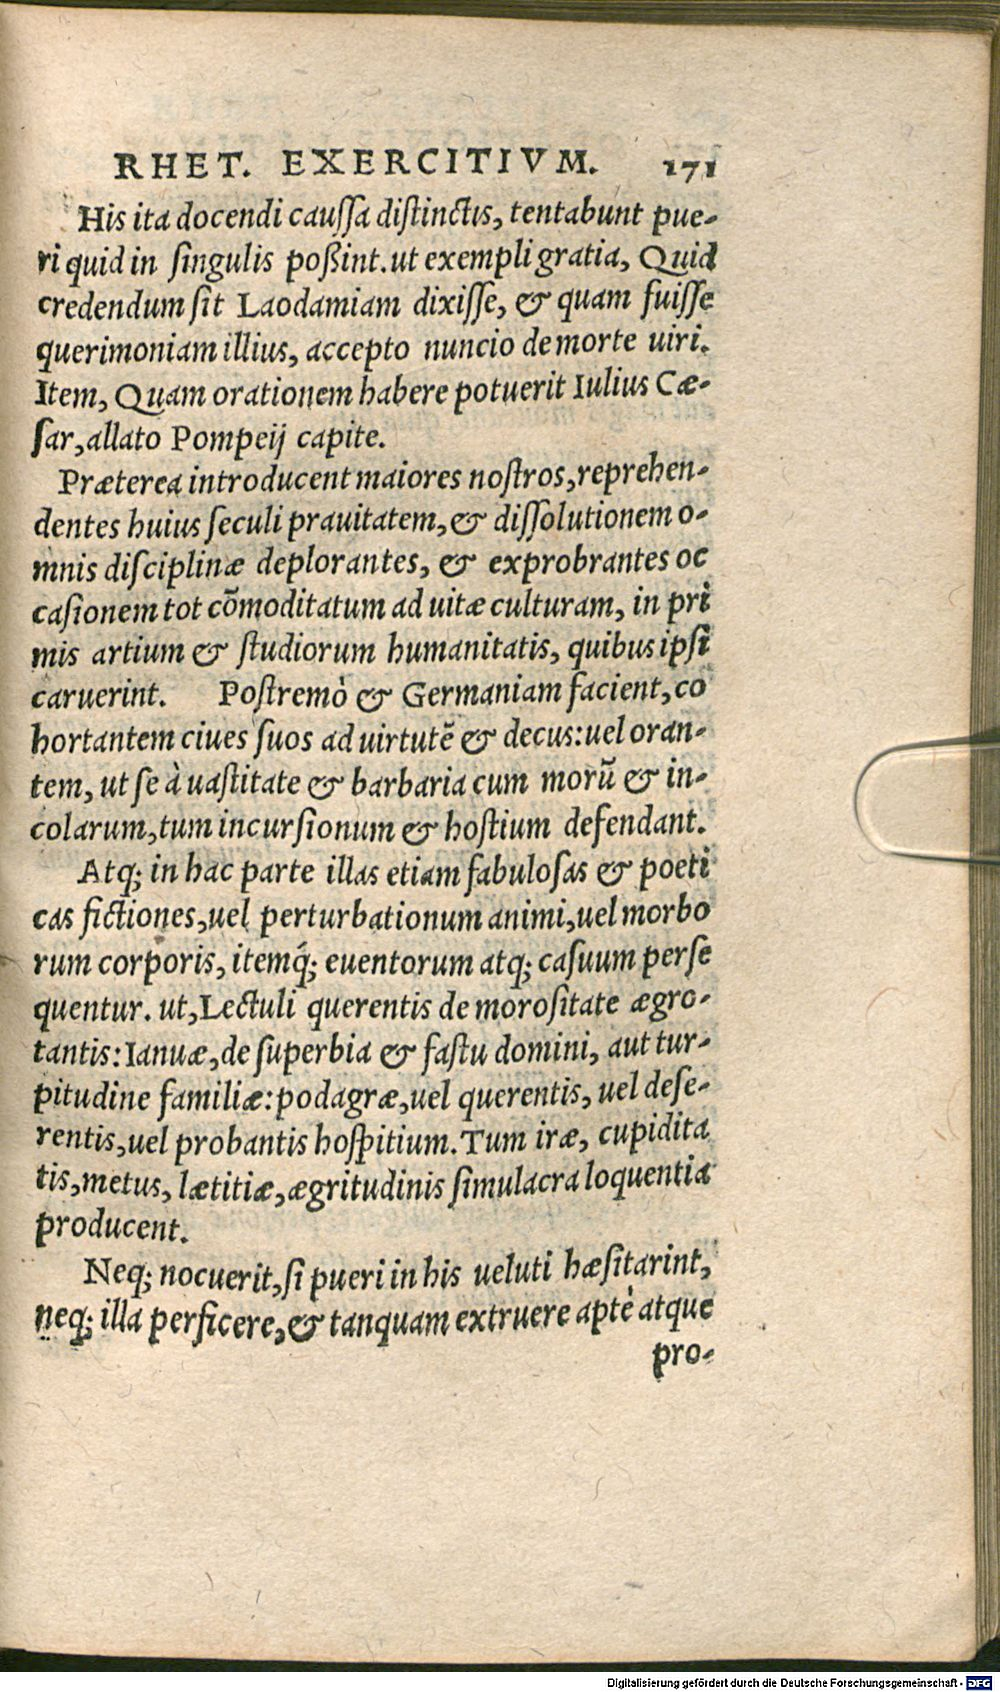 RHET. EXERCITIVM. 171
His ita docendi caussa distinctis, tentabunt pue-
ri quid in singulis poßint. ut exempli gratia, Quid
credendum sit Laodamiam dixisse, & quam fuisse
querimoniam illius, accepto nuncio de morte uiri.
Item, Quam orationem habere potuerit Iulius Cæ-
sar, allato Pompeij capite.
Præterea introducent maiores nostros, reprehen-
dentes huius seculi prauitatem, & dissolutionem o-
mnis disciplinæ deplorantes, & exprobrantes oc
casionem tot cõmoditatum ad uitæ culturam, in pri
mis artium & studiorum humanitatis, quibus ipsi
caruerint. Postremò & Germaniam facient, co
hortantem ciues suos ad uirtutẽ & decus: uel oran-
tem, ut se à uastitate & barbaria cum morũ & in-
colarum, tum incursionum & hostium defendant.
Atq; in hac parte illas etiam fabulosas & poeti
cas fictiones, uel perturbationum animi, uel morbo
rum corporis, itemq́; euentorum atq; casuum perse
quentur. ut, Lectuli querentis de morositate ægro-
tantis: Ianuæ, de superbia & fastu domini, aut tur-
pitudine familiæ: podagræ, uel querentis, uel dese-
rentis, uel probantis hospitium. Tum iræ, cupidita
tis, metus, lætitiæ, ægritudinis simulacra loquentia
producent.
Neq; nocuerit, si pueri in his ueluti hæsitarint,
neq; illa perficere, & tanquam extruere aptè atque
pro-
Digitalisierung gefördert durch die Deutsche Forschungsgemeinschaft - DFG